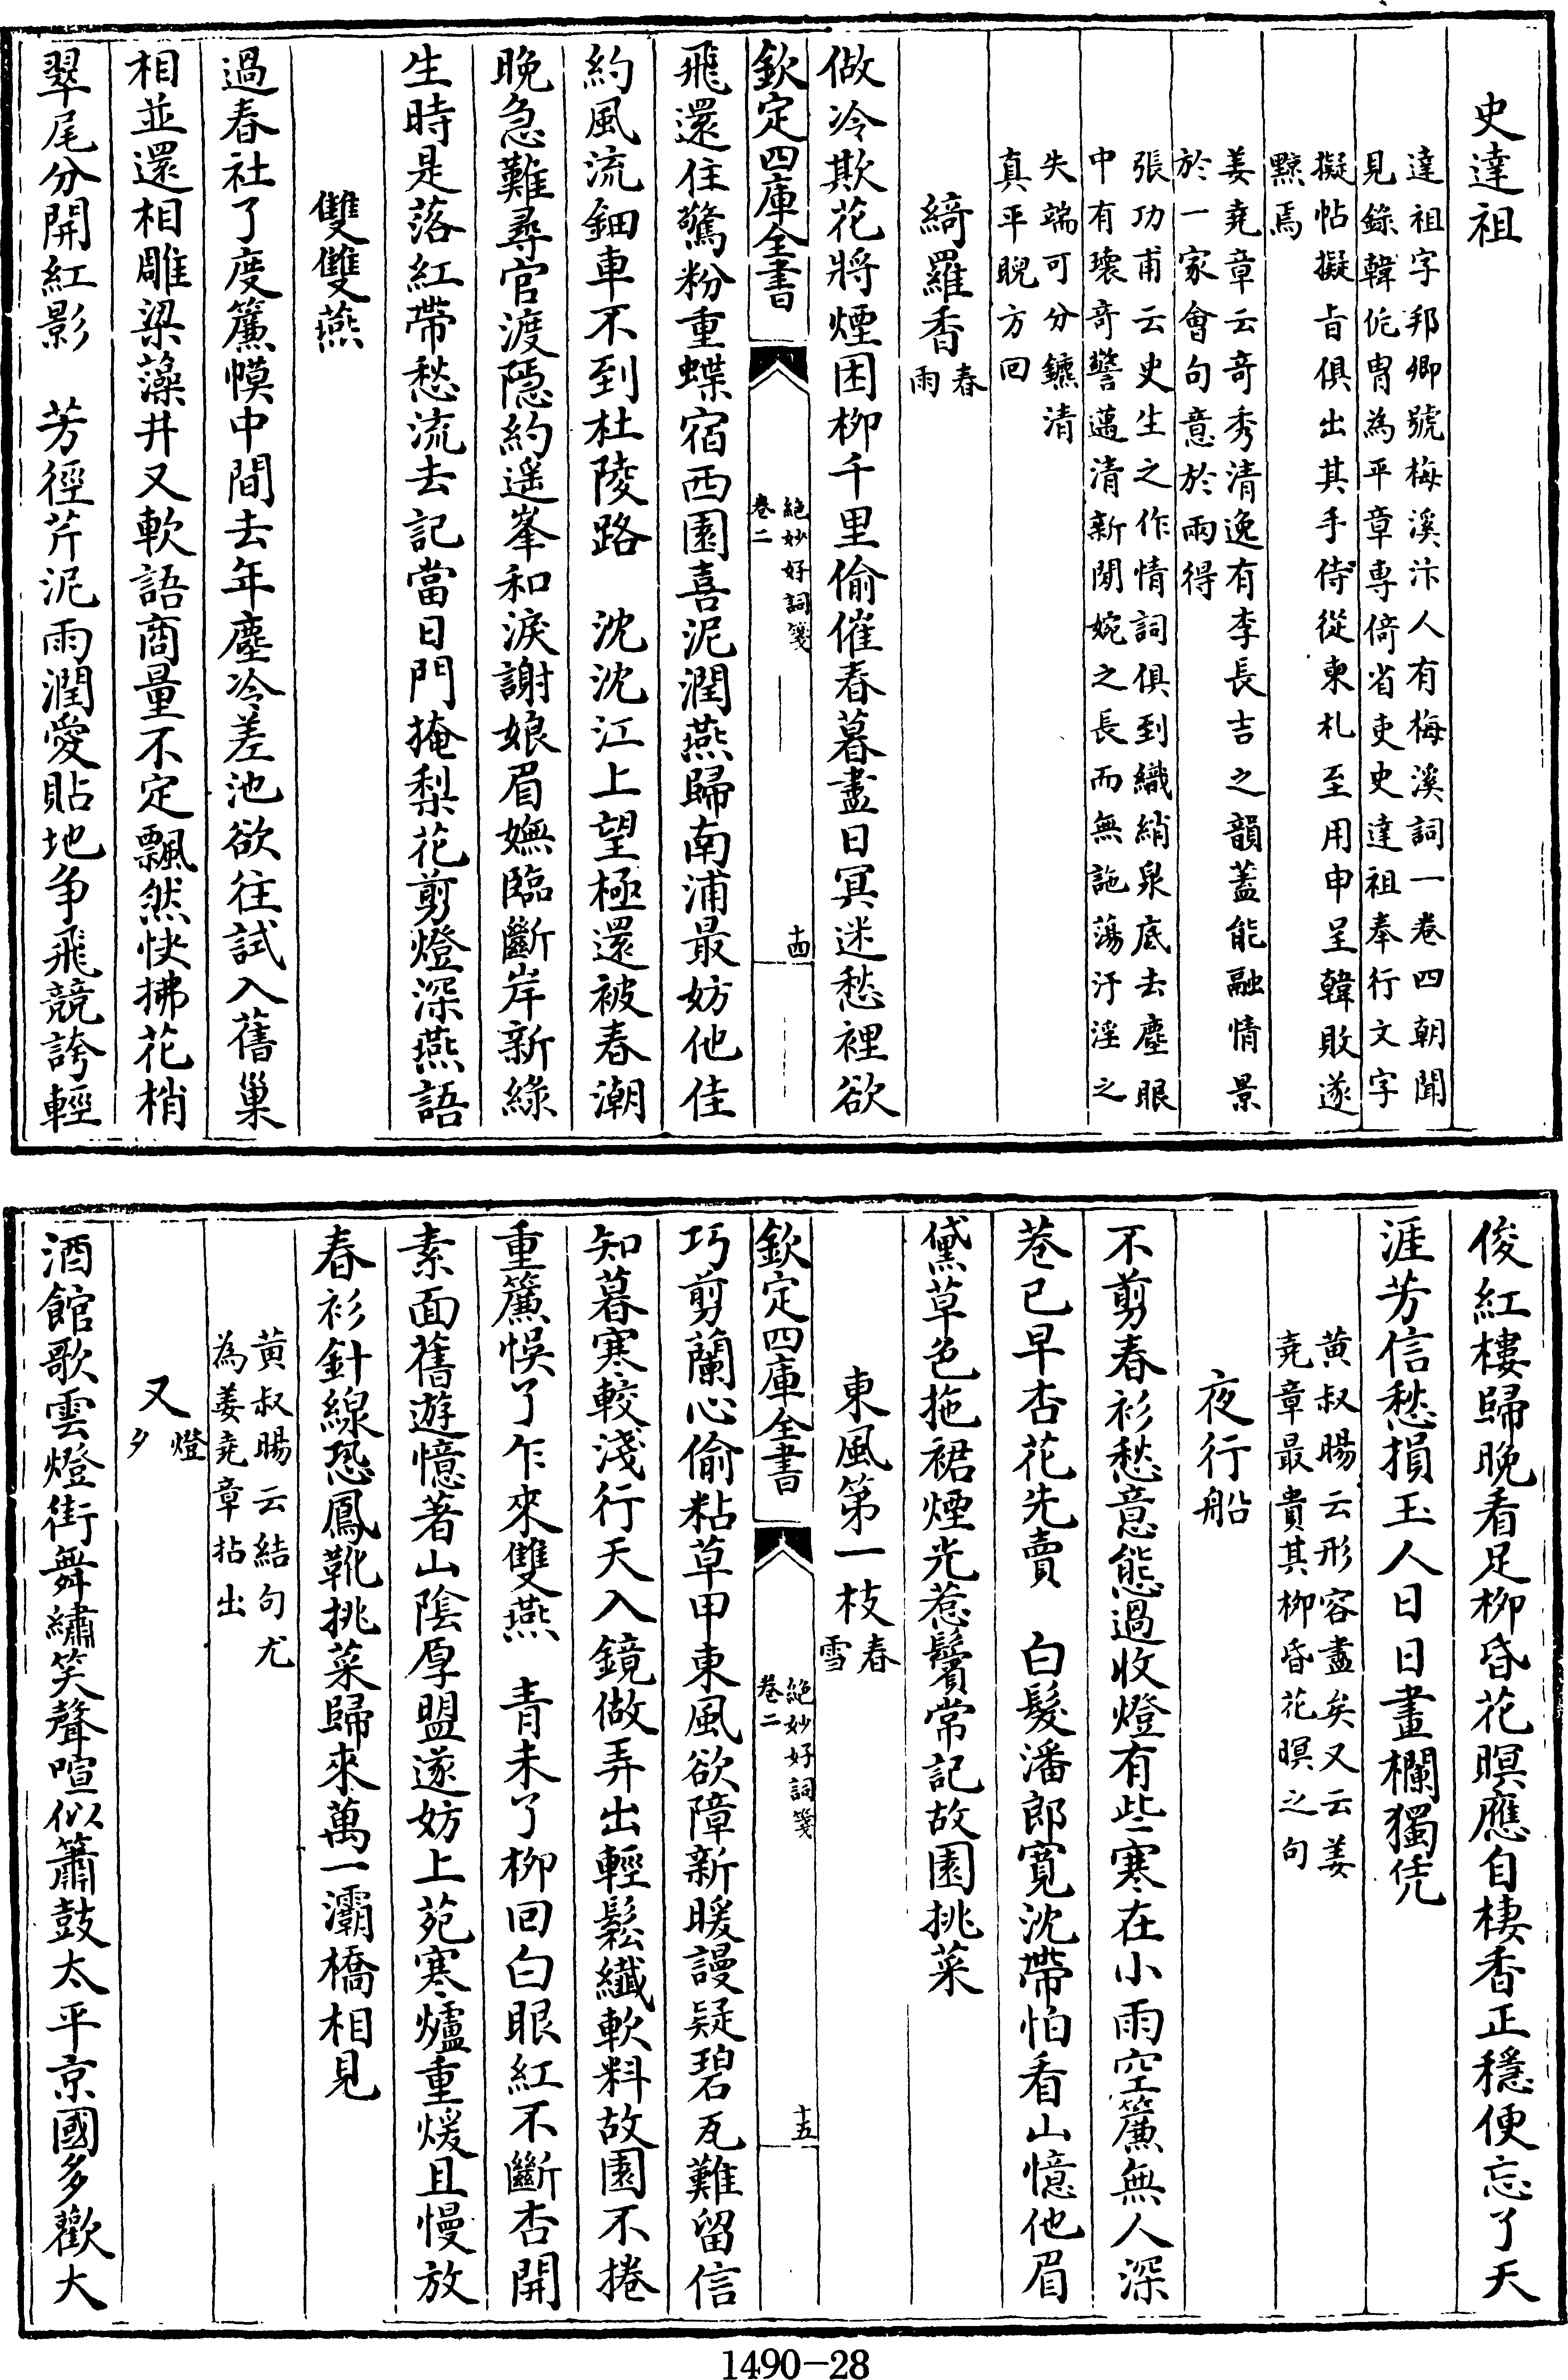 史達祖
達祖字邦卿號梅溪汴人有梅溪詞一卷四朝聞
見錄韓侂胄為平章専倚省吏史達祖奉行文字
擬帖擬㫖俱出其手侍從柬札至用申呈韓敗遂
黥焉
姜堯章云奇秀清逸有李長吉之韻葢能融情景
於一家會句意於兩得
張功甫云史生之作情詞俱到織綃泉底去塵眼
中有瓌奇警邁清新閒婉之長而無詑蕩汙淫之
失端可分鑣清
真平睨方回
綺羅香春雨
做冷欺花將煙困柳千里偷催春暮盡日冥迷愁裡欲
欽定四庫全書
絶妙好詞箋
卷二
十四
飛還住驚粉重蝶宿西園喜泥潤燕歸南浦最妨他佳
約風流鈿車不到杜陵路　沈沈江上望極還被春潮
晚急難尋官渡隠約遥峯和淚謝娘眉嫵臨斷岸新緑
生時是落紅帶愁流去記當日門掩梨花剪燈深燕語
雙雙燕
過春社了度簾幙中間去年塵冷差池欲往試入舊巢
相並還相雕梁藻井又軟語商量不定飄然快拂花梢
翠尾分開紅影　芳徑芹泥雨潤愛貼地争飛競誇輕
俊紅樓歸晚看足柳昏花暝應自棲香正穩便忘了天
涯芳信愁損玉人日日畫欄獨凭
黄叔暘云形容盡矣又云姜
堯章最貴其柳昏花暝之句
夜行船
不剪春衫愁意態過收燈有些寒在小雨空簾無人深
巷已早杏花先賣　白髪潘郎寛沈帶怕看山憶他眉
黛草色拖裙煙光惹鬢常記故園挑菜
東風第一枝春雪
欽定四庫全書
絶妙好詞箋
卷二
十五
巧剪蘭心偷粘草甲東風欲障新暖謾疑碧瓦難留信
知暮寒較淺行天入鏡做弄出輕鬆纖軟料故園不捲
重簾悞了乍來雙燕　青未了柳回白眼紅不斷杏開
素面舊遊憶著山陰厚盟遂妨上苑寒爐重煖且慢放
春衫針線恐鳳靴挑菜歸來萬一灞橋相見
黄叔暘云結句尤
為姜堯章拈出
又燈夕
酒館歌雲燈街舞繡笑聲喧似簫鼓太平京國多歡大
1490-28